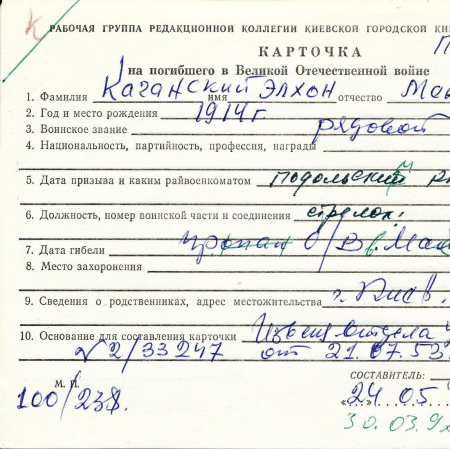 РАБОЧАЯ ГРУППА РЕДАКЦИОННОЙ КОЛЛЕГИИ КИЕВСКОЙ ГОРОДСКОЙ КН
КАРТОЧКА
на погибшего в Великой Отечественной войне
1. Фамилия Каганский имя Элхон отчество Ма
2. Год и место рождения 1914 г
3. Воинское звание рядовой
4. Национальность, партийность, профессия, награды
5. Дата призыва и каким райвоенкоматом Подольский
6. Должность, номер воинской части и соединения стрелок
7. Дата гибели пропал б/в в Ма
8. Место захоронения
9. Сведения о родственниках, адрес местожительства г. Киев.
10. Основание для составления карточки
№ 2/33247 от 21.07.53
М. П. СОСТАВИТЕЛЬ:
100/238. «24.05
30.03.9